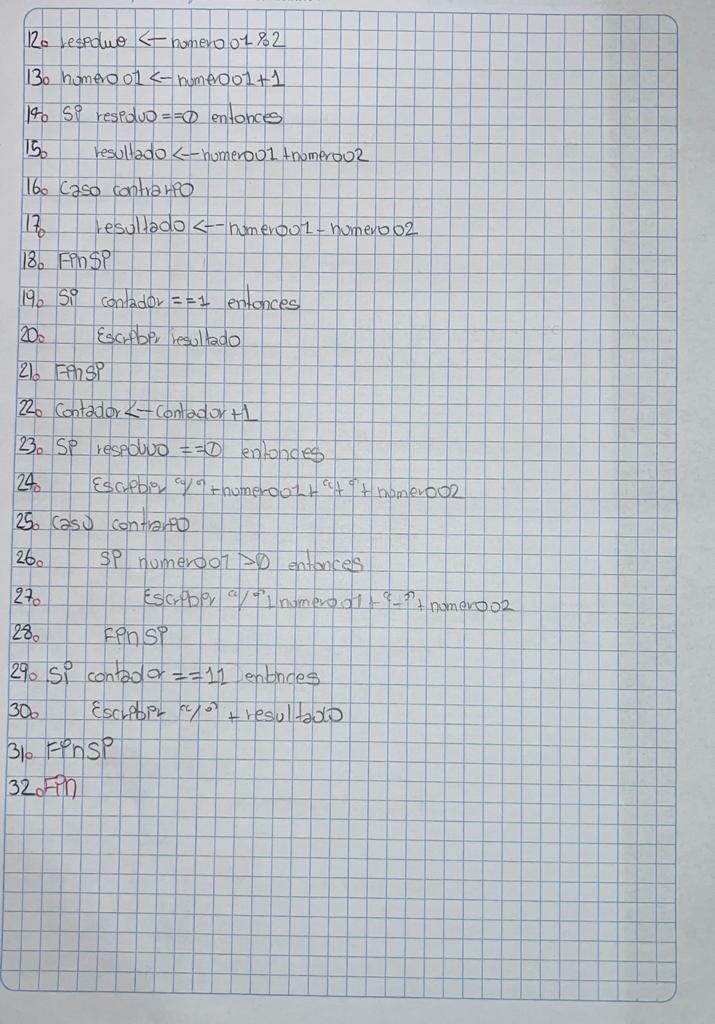 12. residuo <- numero01 % 2
13. numero01 <- numero01 + 1
14. Si residuo == 0 entonces
15. resultado <- numero01 + numero02
16. Caso contrario
17. resultado <- numero01 - numero02
18. FinSi
19. Si contador == 1 entonces
20. Escribir resultado
21. FinSi
22. Contador <- contador + 1
23. Si residuo == 0 entonces
24. Escribir "/" + numero01 + "+" + numero02
25. Caso contrario
26. Si numero01 > 0 entonces
27. Escribir "/" + numero01 + "-" + numero02
28. FinSi
29. Si contador == 11 entonces
30. Escribir "/" + resultado
31. FinSi
32. Fin